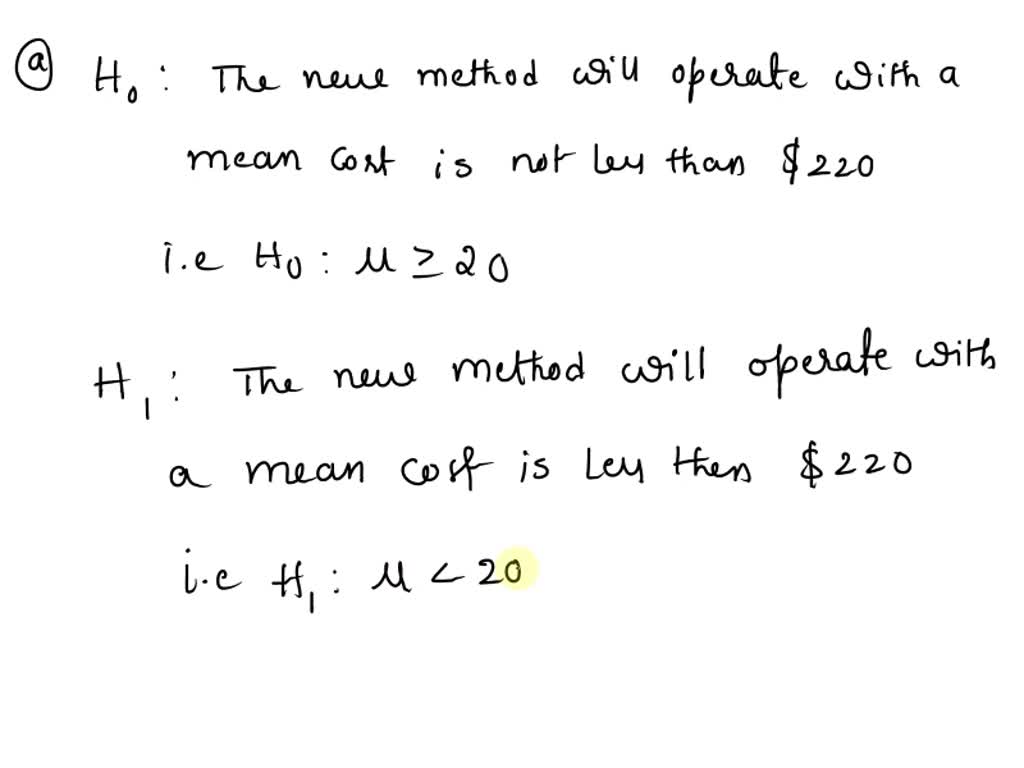 ⓐ H₀ : The neue method will operate with a
mean cost is not ley than $220
i.e H₀ : μ ≥ 20
H₁ : The neue method will operate with
a mean cost is ley then $220
i.e H₁ : μ < 20